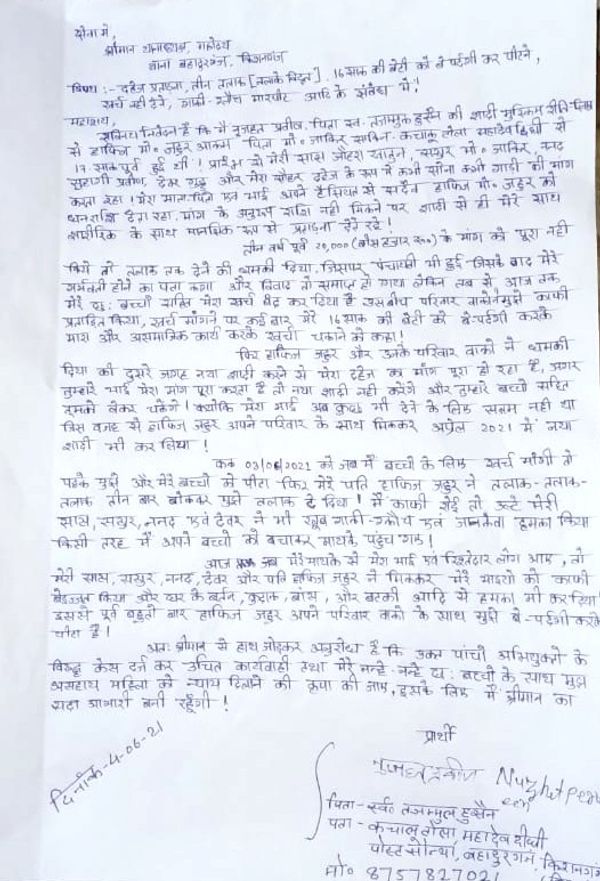 सेवा में,
श्रीमान थानाध्यक्ष, महोदय
थाना बहादुरगंज, किशनगंज
विषय :- दहेज प्रताड़ना, तीन तलाक [तलाके बिद्दत], 16 साल की बेटी को बे पर्दगी कर पीटने,
खर्च नही देने, गाली-गलौच मारपीट आदि के संबंध में!
महाशय,
सविनय निवेदन है कि मैं नुजहत प्रवीण, पिता स्व. तजम्मुल हुसैन की शादी मुस्लिम रीति-रिवाज
से हाफिज मो० जहुर आलम पिता मो० जाकिर साकिन- कचालू टोला महादेव दिघी से
17 साल पूर्व हुई थी! प्रारंभ से मेरी सास जोहरा खातुन, ससुर मो० जाकिर, ननद
सुहागी प्रवीण, देवर गुड्डु और मेरा सोहर दहेज के रूप में कभी सोना कभी गाड़ी की मांग
करता रहा! मेरा माता-पिता एवं भाई अपने हैसियत से सदैव हाफिज मो० जहुर को
धनराशि देता रहा. मांग के अनुरूप राशि नही मिलने पर शादी से ही मेरे साथ
शारीरिक के साथ मानसिक रूप से प्रताड़ना देते रहे!
तीन वर्ष पूर्व 20,000 (बीस हजार रू०) के मांग को पूरा नही
किये तो तलाक तक देने की धमकी दिया. जिसपर पंचायती भी हुई जिसके बाद मेरे
गर्भवती होने का पता लगा और विवाद तो समाप्त हो गया लेकिन तब से आज तक
मेरे छः बच्चो सहित मेरा खर्च बंद कर दिया है इसबीच परिवार वालो ने मुझे काफी
प्रताड़ित किया, खर्च मांगने पर कई बार मेरे 16 साल की बेटी को बे-पर्दगी करके
मारा और असमाजिक कार्य करके खर्चा चलाने को कहा!
फिर हाफिज जहुर और उनके परिवार वालो ने धमकी
दिया की दुसरे जगह नया शादी करने से मेरा दहेज का मांग पूरा हो रहा है, अगर
तुम्हारे भाई मेरा मांग पूरा करता है तो नया शादी नही करेंगे और तुम्हारे बच्चो सहित
तुमको लेकर चलेंगे! क्योंकि मेरा भाई अब कुछ भी देने के लिए सक्षम नही था
जिस वजह से हाफिज जहुर अपने परिवार के साथ मिलकर अप्रेल 2021 में नया
शादी भी कर लिया!
कल 03/06/2021 को जब मैं बच्चो के लिए खर्च मांगी तो
पहले मुझे और मेरे बच्चो को पीटा फिर मेरे पति हाफिज जहुर ने तलाक-तलाक-
तलाक तीन बार बोलकर मुझे तलाक दे दिया! मैं काफी रोई तो उल्टे मेरी
सास, ससुर, ननद एवं देवर ने भी खुब गाली-गलौच एवं जानलेवा हमला किया
किसी तरह मैं अपने बच्चो को बचाकर मायके पहुंच गई!
आज जब मेरे मायके से मेरा भाई एवं रिश्तेदार लोग आए, तो
मेरी सास, ससुर, ननद, देवर और पति हाफिज जहुर ने मिलकर मेरे भाइयो को काफी
बेइज्जत किया और घर के बर्तन, कुदाल, बांस, और बटकी आदि से हमला भी कर दिया
इससे पूर्व बहुतो बार हाफिज जहुर अपने परिवार वालो के साथ मुझे बे-पर्दगी करके
पीटा है!
अतः श्रीमान से हाथ जोड़कर अनुरोध है कि उक्त पांचो अभियुक्तो के
विरुद्ध केस दर्ज कर उचित कार्यवाही तथा मेरे नन्हे-नन्हे छः बच्चो के साथ मुझ
असहाय महिला को न्याय दिलाने की कृपा की जाए, इसके लिए मैं श्रीमान का
सदा आभारी बनी रहूँगी!
दिनांक-4-06-21
प्रार्थी
नुजहत प्रवीण Nuzhat perw
een
पिता - स्व० तजम्मुल हुसैन
पता - कचालु टोला महादेव दीघी
पोस्ट सोन्था, बहादुरगंज, किशनगंज
मो० 8757827021